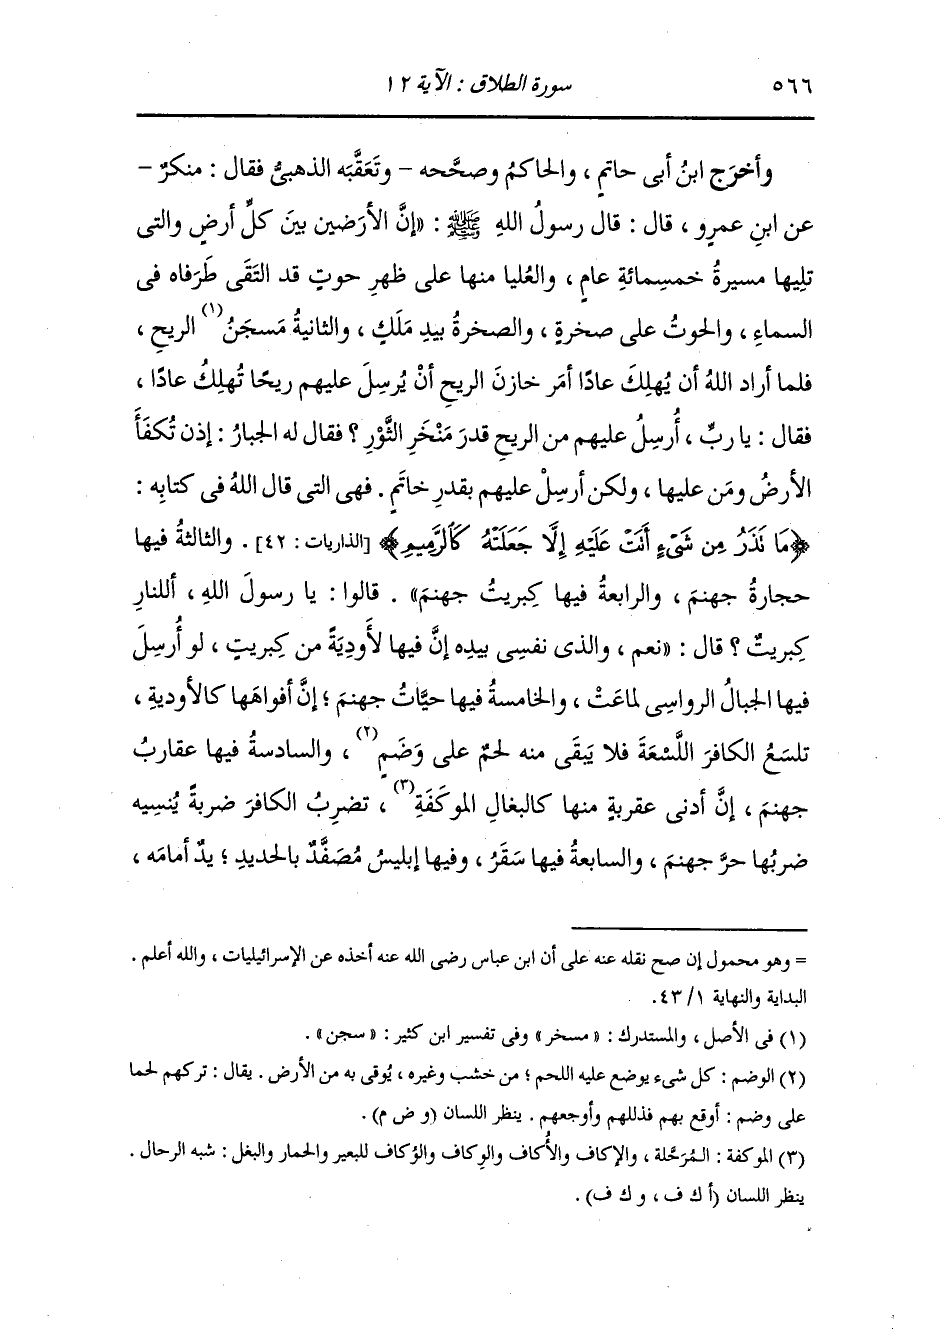 ٥٦٦
سورة الطلاق : الآية ١٢
وأخرَج ابنُ أبى حاتمٍ ، والحاكمُ وصحَّحه – وتَعَقَّبَه الذهبىُّ فقال : منكرٌ –
عن ابنِ عمرٍو ، قال : قال رسولُ اللهِ ﷺ : «إنَّ الأرَضين بينَ كلِّ أرضٍ والتى
تلِيها مسيرةُ خمسِمائةِ عامٍ ، والعُليا منها على ظهرِ حوتٍ قد التَقَى طَرَفاه فى
السماءِ ، والحوتُ على صخرةٍ ، والصخرةُ بيدِ مَلَكٍ ، والثانيةُ مَسجَنُ(١) الريحِ ،
فلما أراد اللهُ أن يُهلِكَ عادًا أمَر خازنَ الريحِ أنْ يُرسِلَ عليهم ريحًا تُهلِكُ عادًا ،
فقال : يا ربِّ ، أُرسِلُ عليهم من الريحِ قدرَ مَنْخَرِ الثَّوْرِ ؟ فقال له الجبارُ : إذن تُكفَأَ
الأرضُ ومَن عليها ، ولكن أرسِلْ عليهم بقدرِ خاتَمٍ . فهى التى قال اللهُ فى كتابِه :
﴿مَا نَذَرُ مِن شَىْءٍ أَتَتْ عَلَيْهِ إِلَّا جَعَلَتْهُ كَٱلرَّمِيمِ﴾ [الذاريات : ٤٢] . والثالثةُ فيها
حجارةُ جهنمَ ، والرابعةُ فيها كِبريتُ جهنمَ» . قالوا : يا رسولَ اللهِ ، أللنارِ
كِبريتٌ ؟ قال : «نعم ، والذى نفسِى بيدِه إنَّ فيها لَأَودِيَةً من كِبريتٍ ، لو أُرسِلَ
فيها الجبالُ الرواسِى لماعَتْ ، والخامسةُ فيها حيَّاتُ جهنمَ ؛ إنَّ أفواهَها كالأوديةِ ،
تلسَعُ الكافرَ اللَّسْعَةَ فلا يَبقَى منه لحمٌ على وَضَمٍ(٢) ، والسادسةُ فيها عقاربُ
جهنمَ ، إنَّ أدنى عقربةٍ منها كالبغالِ الموكَفَةِ(٣) ، تضرِبُ الكافرَ ضربةً يُنسِيه
ضربُها حرَّ جهنمَ ، والسابعةُ فيها سَقَرُ ، وفيها إبليسُ مُصَفَّدٌ بالحديدِ ؛ يدٌ أمامَه ،
= وهو محمول إن صح نقله عنه على أن ابن عباس رضى الله عنه أخذه عن الإسرائيليات ، والله أعلم .
البداية والنهاية ١/ ٤٣.
(١) فى الأصل ، والمستدرك : « مسخر » وفى تفسير ابن كثير : « سجن » .
(٢) الوضم : كل شىء يوضع عليه اللحم ؛ من خشب وغيره ، يُوقى به من الأرض . يقال : تركهم لحما
على وضم : أوقع بهم فذللهم وأوجعهم . ينظر اللسان (و ض م) .
(٣) الموكفة : المُرَحَّلة ، والإكاف والأُكاف والوِكاف والوُكاف للبعير والحمار والبغل : شبه الرحال .
ينظر اللسان (أ ك ف ، و ك ف) .